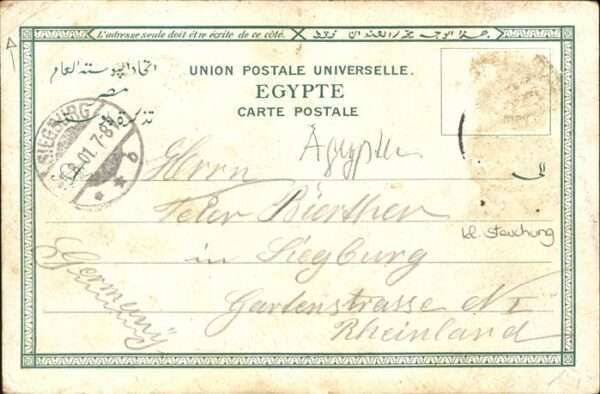 L'adresse seule doit être écrite de ce côté.
UNION POSTALE UNIVERSELLE.
اتحاد البوستة العام
EGYPTE
مصر
CARTE POSTALE
SIEGBURG
01.7-8
Ägypten
Herrn
Peter Bierther
kl. Stauchung
in Siegburg
Germany
Gartenstrasse
Rheinland